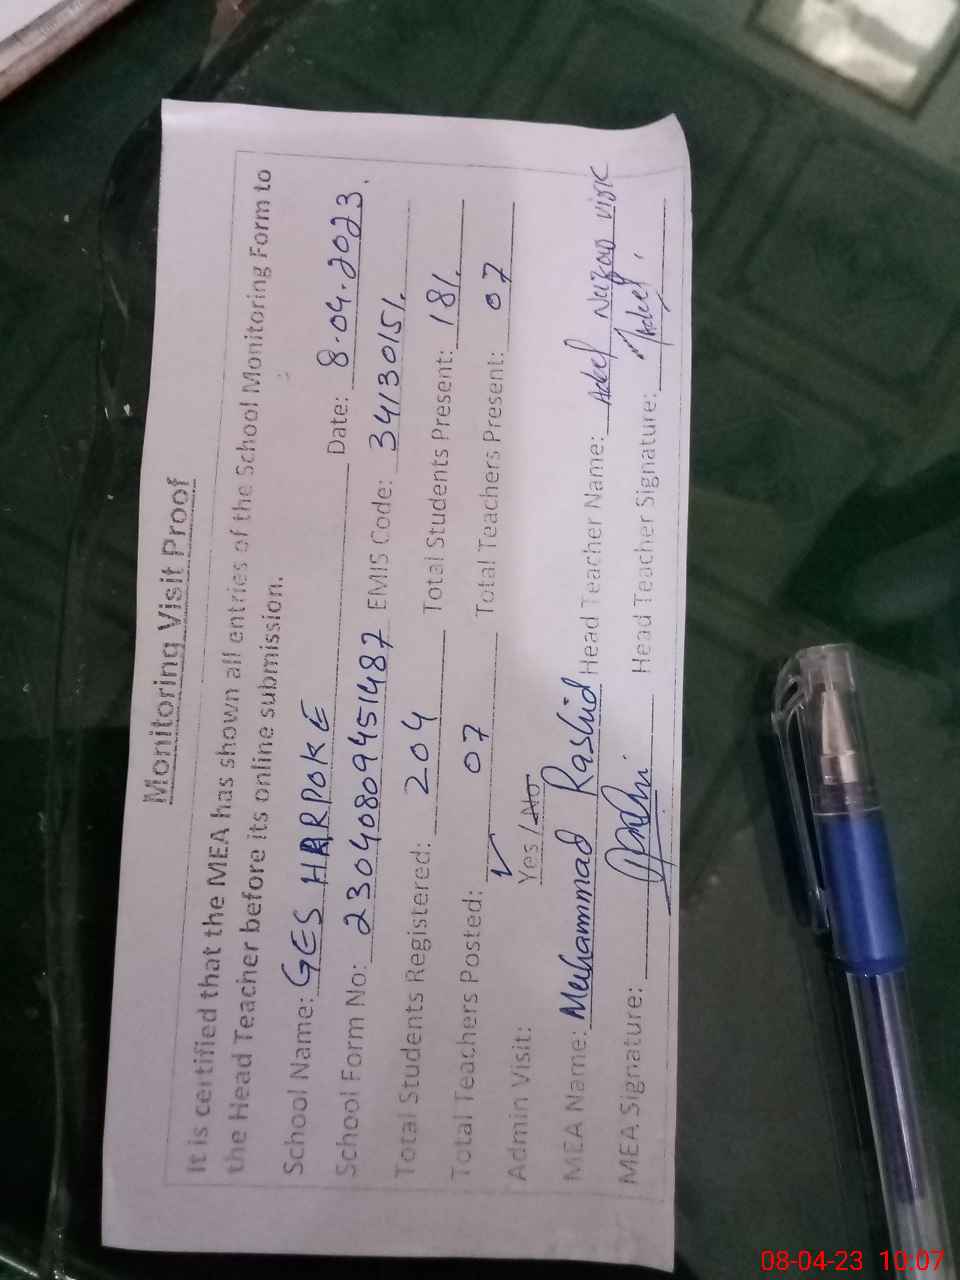 Monitoring Visit Proof
It is certified that the MEA has shown all entries of the School Monitoring Form to
the Head Teacher before its online submission.
School Name: GES HARPOKE Date: 8.04.2023.
School Form No: 230408094514487 EMIS Code: 34130151.
Total Students Registered: 204 Total Students Present: 181.
Total Teachers Posted: 07 Total Teachers Present: 07
Admin Visit: Yes / No
MEA Name: Muhammad Rashid Head Teacher Name: Adeel Virk
MEA Signature: Head Teacher Signature: Adeel
08-04-23 10:07